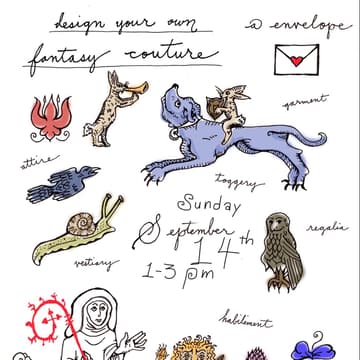 design your own
a envelope
fantasy couture
garment
attire
toggery
Sunday
September
14th
regalia
vestiary
1-3 pm
habilement